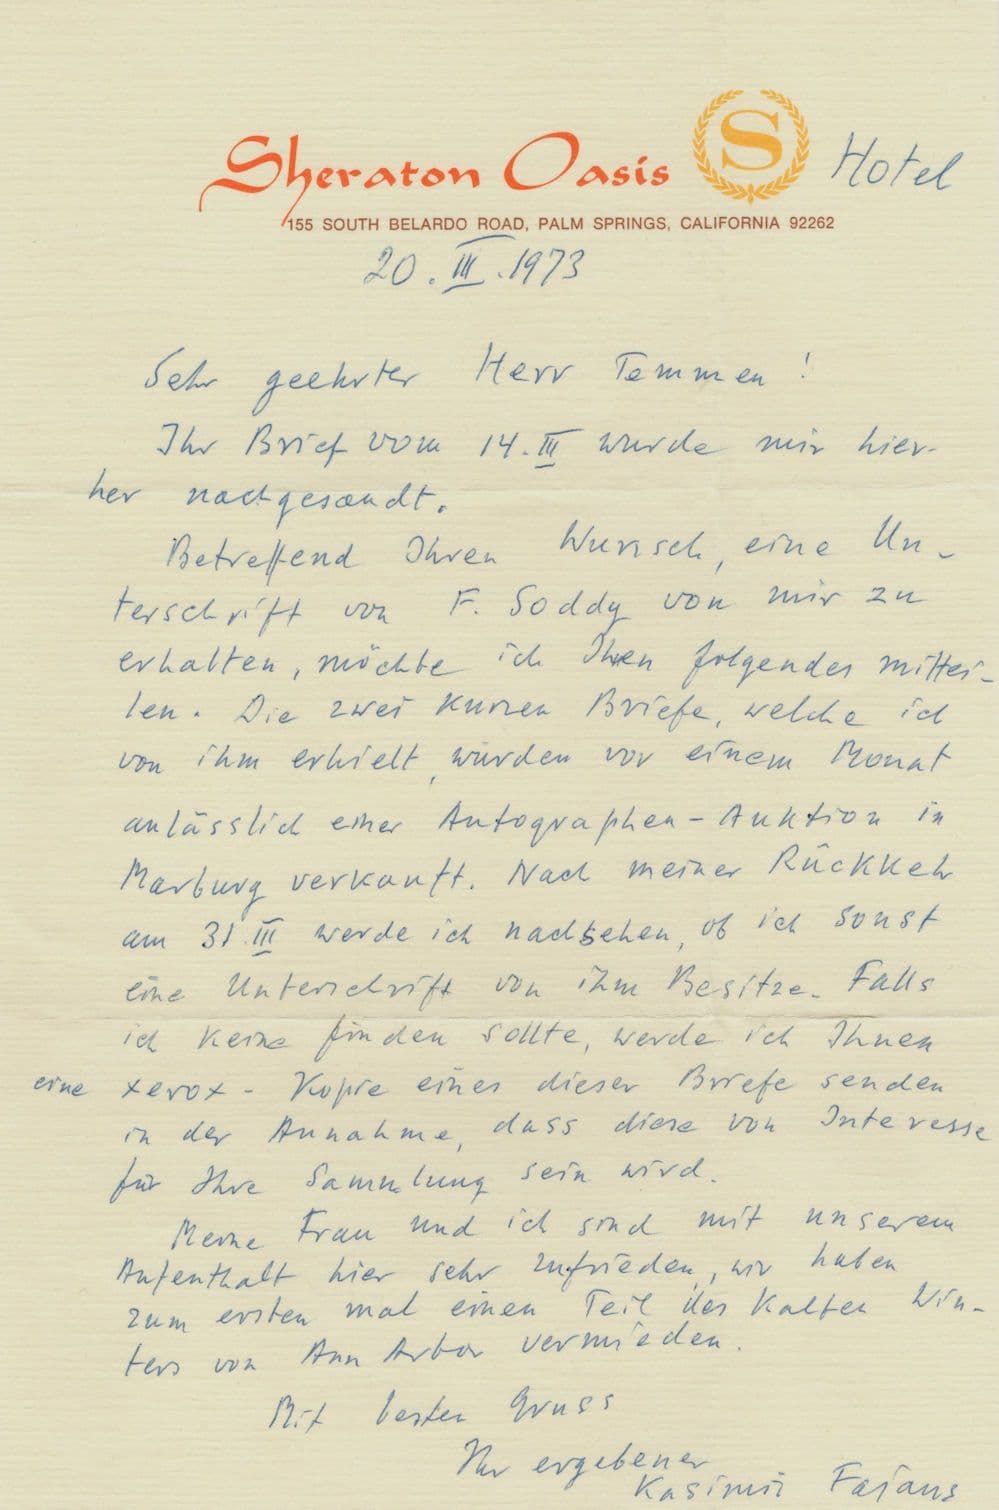 Sheraton Oasis S Hotel
155 SOUTH BELARDO ROAD, PALM SPRINGS, CALIFORNIA 92262
20.III.1973
Sehr geehrter Herr Temmen!
Ihr Brief vom 14.III wurde mir hier-
her nachgesandt.
Betreffend Ihren Wunsch, eine Un-
terschrift von F. Soddy von mir zu
erhalten, möchte ich Ihnen folgendes mittei-
len. Die zwei kurzen Briefe, welche ich
von ihm erhielt, wurden vor einem Monat
anlässlich einer Autographen-Auktion in
Marburg verkauft. Nach meiner Rückkehr
am 31.III werde ich nachsehen, ob ich sonst
eine Unterschrift von ihm Besitze. Falls
ich keine finden sollte, werde ich Ihnen
eine xerox-Kopie eines dieser Briefe senden
in der Annahme, dass diese von Interesse
für Ihre Sammlung sein wird.
Meine Frau und ich sind mit unserem
Aufenthalt hier sehr zufrieden, wir haben
zum ersten mal einen Teil des kalten Win-
ters von Ann Arbor vermieden.
Mit besten Gruss
Ihr ergebener
Kasimir Fajans